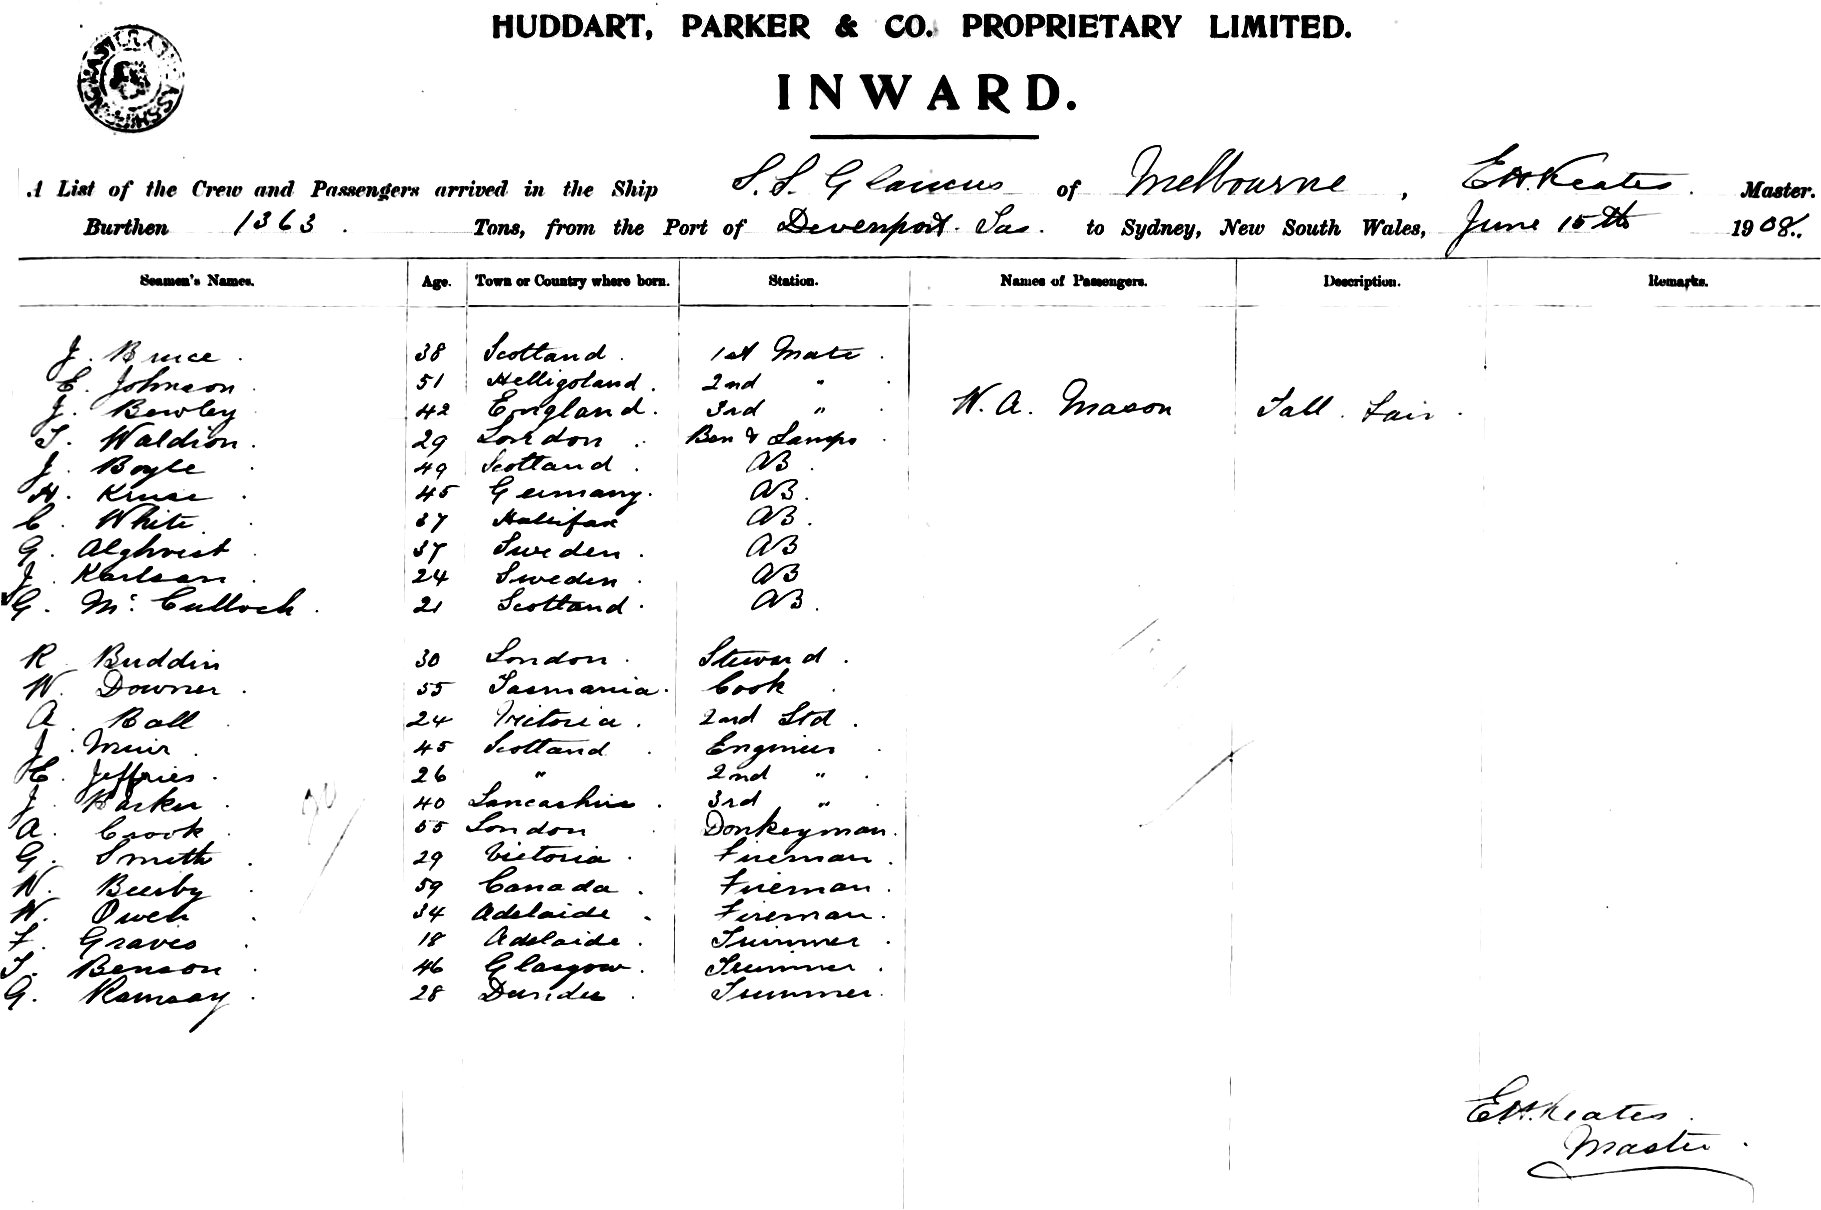 HUDDART, PARKER & CO. PROPRIETARY LIMITED.
INWARD.
A List of the Crew and Passengers arrived in the Ship S.S. Glaucus of Melbourne, E.H. Keates. Master.
Burthen 1363. Tons, from the Port of Devenport. Tas. to Sydney, New South Wales, June 15th 1908.
Seamen's Names. Age. Town or Country where born. Station. Names of Passengers. Description. Remarks.
J. Bruce. 38 Scotland. 1st Mate.
E. Johnson. 51 Helligoland. 2nd "
J. Bewley 42 England. 3rd " W. A. Mason Tall. Fair.
T. Waldion. 29 London. Bsn & Lamps
J. Boyle 49 Scotland. AB.
H. Kruse 45 Germany. AB.
C. White 37 Halifax AB.
G. Alghvist 37 Sweden. AB
J. Karlson 24 Sweden. AB
G. Mc. Culloch. 21 Scotland. AB.
R Buddin 30 London. Steward.
W. Downer. 55 Tasmania. Cook
A. Ball 24 Victoria. 2nd Std.
J. Muir 45 Scotland Engineer
E. Jeffries. 26 " 2nd "
J. Barker 40 Lancashire. 3rd "
A. Crook 55 London Donkeyman.
G. Smith 29 Victoria. Fireman.
W. Beerby 59 Canada. Fireman.
W. Owen 34 Adelaide. Fireman.
F. Graves 18 Adelaide. Trimmer
T. Benson 46 Glasgow. Trimmer.
G. Ramsay. 28 Dundee. Trimmer.
E.H. Keates.
Master.